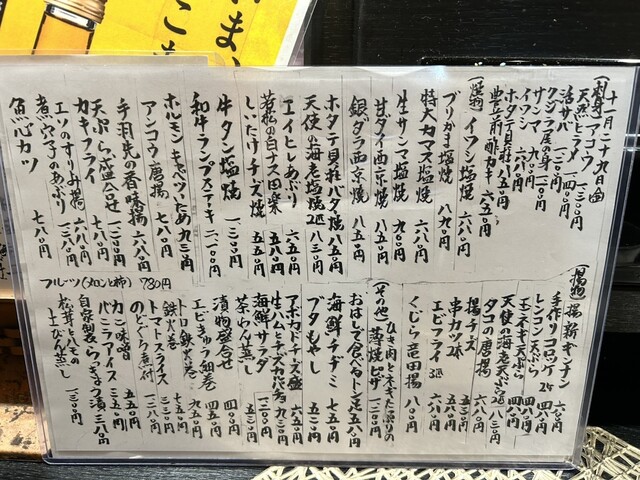 十月二十九日(金)
(刺身)アコウ 一三〇〇円
天然ヒラメ 一三〇〇円
活サバ 一四〇〇円
クジラ尾の身
サンマ
イワシ 六八〇円
ホタテ貝柱 八五〇円
豊前酢カキ 六五〇円
(焼物)イワシ塩焼 六八〇円
ブリかま塩焼 八九〇円
特大カマス塩焼 六八〇円
生サンマ塩焼
甘ダイ西京焼
銀ダラ西京焼 八五〇円
ホタテ貝柱バタ焼 八五〇円
天使の海老塩焼2匹 八三〇円
エイヒレあぶり 六五〇円
若松の白ナス田楽 五八〇円
しいたけチーズ焼 五五〇円
牛タン塩焼 一三〇〇円
和牛ランプステーキ 二一〇〇円
ホルモンキャベツいため 九三〇円
アンコウ唐揚
手羽先の香味揚 六八〇円
天ぷら盛合せ 一三〇〇円
カキフライ 七八〇円
エソのすりみ揚 六八〇円
煮穴子のあぶり 一三八〇円
魚心カツ 七八〇円
(揚物)揚新ギンナン
手作りコロッケ2ケ 六三〇円
レンコン天ぷら 四八〇円
玉ネギ天ぷら 四八〇円
天使の海老天ぷら2匹 八三〇円
タコの唐揚 六八〇円
揚チーズ 五三〇円
串カツ2本 六八〇円
エビフライ3匹
くじら竜田揚
(その他)薄焼ピザ
おはしで食べるトン足 五八〇円
海鮮チヂミ
ブタもやし 五三〇円
アボカドチーズ盛 六五〇円
生ハムとチーズのカルパッチョ 九三〇円
海鮮サラダ 一二〇〇円
茶わん蒸し
漬物盛合せ 四〇〇円
エビきゅう細巻 四五〇円
トロ鉄火巻 九五〇円
鉄火巻 七五〇円
トマトスライス 三八〇円
のどぐろ煮付
カニ味噌
バニラアイス
自家製らっきょう漬 三八〇円
松茸とハモの土びん蒸し 一三〇〇円
フルーツ(メロンと柿) 780円